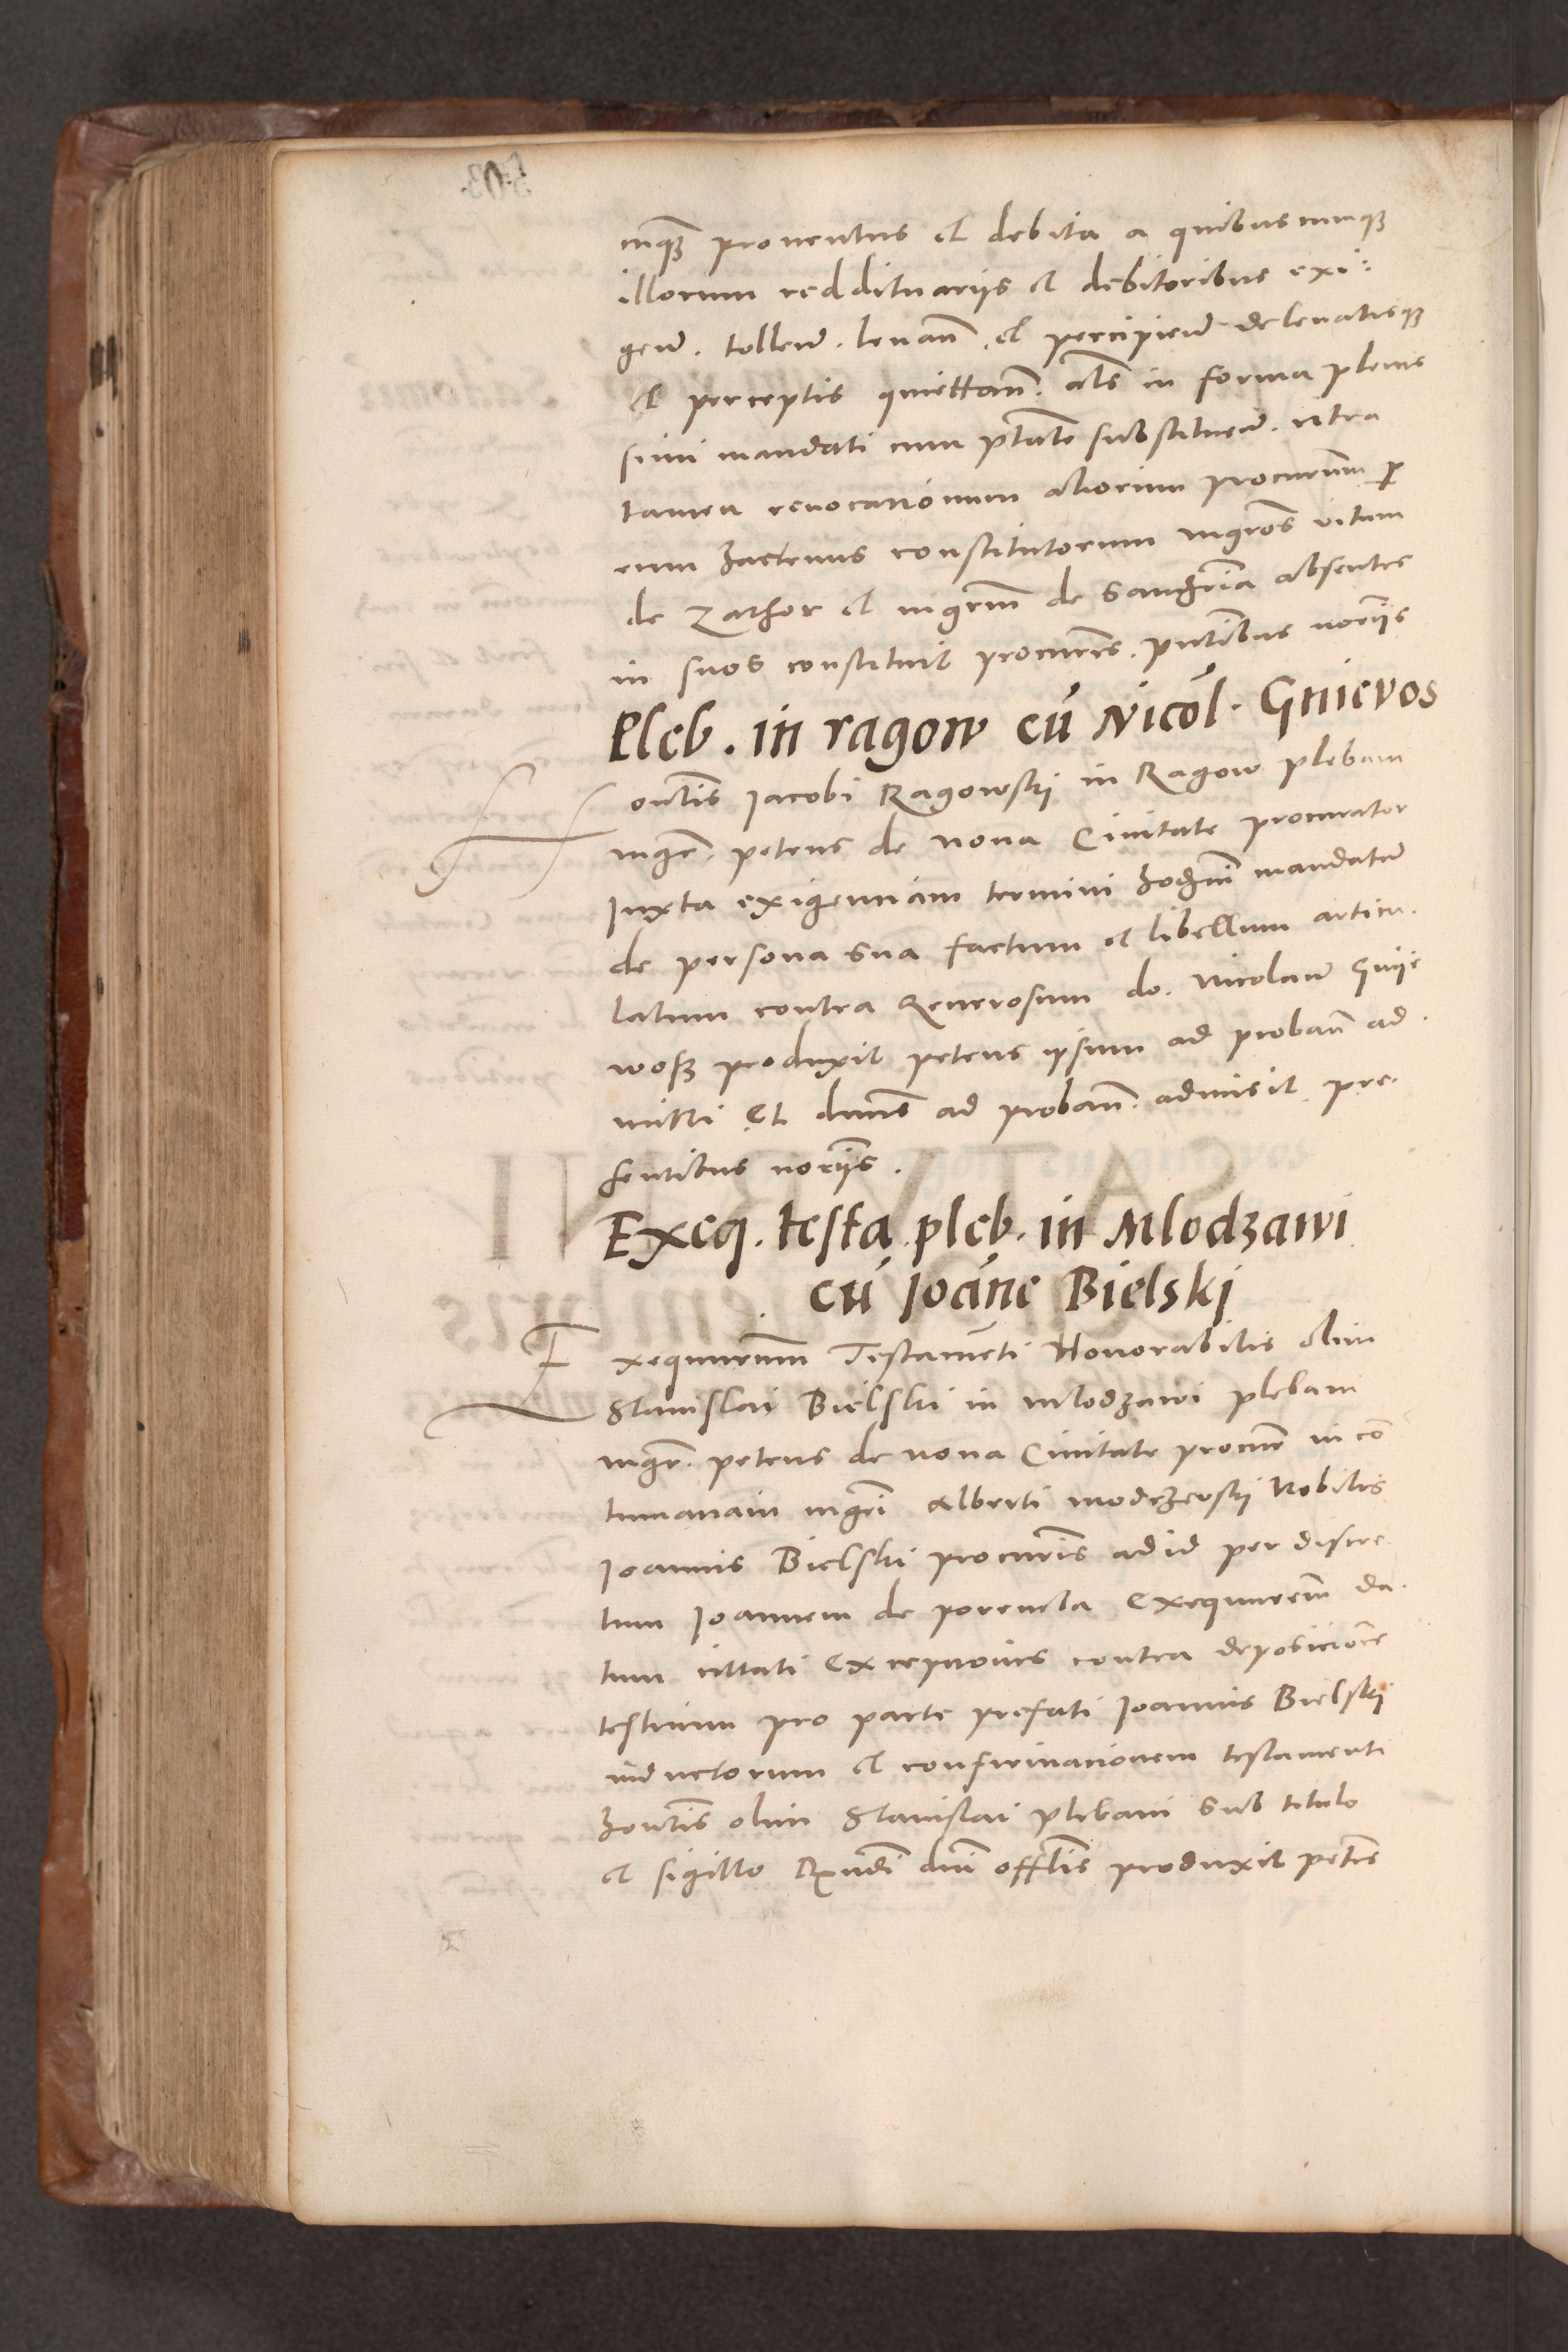 cuq3 proventus et debita a quibuscumq3
illorum reddituariis et debitoribus exi:
gend. tollend. levand. et percipiend. de levatisq3
et perceptis quiettand. als in forma plenis
simi mandati cum ptate substituend. citra
tamen revocationem aliorum procurum per
eum hactenus constitutorum mgros vitum
de Zathor et mgrum de Sangria absentes
in suos constituit procures. pntibus noriis
Pleb. in ragow cu Nicol. Gnievos
Hontis Jacobi Ragowskij in Ragow plebani
mgr. petrus de nova Civitate procurator
Juxta exigentiam termini hodierni mandatum
de persona sua factum et libellum articu.
latum contra Generosum do. Nicolaum Gnije
wosz produxit petens ipsum ad proband ad.
mitti Et dnus ad proband. admisit pre.
sentibus noriis.
Exeq. testa. pleb. in Mlodzawi
cu Joane Bielskj
Exequutorum Testameti Honorabilis olim
Stanislai Bielski in mlodzawi plebani
mgr. petrus de nova Civitate procur in con
tumatiam mgri Alberti modrzewskij Nobilis
Joannis Bielski procuris ad id per discre
tum Joannem de poremba Exequutorem da.
tum cittati Exceptiones contra deposicione
testium pro parte prefati Joannis Bielskij
inductorum et confirmacionem testamenti
hontis olim Stanislai plebani sub titulo
et sigillo Rxndi dni offlis produxit petens